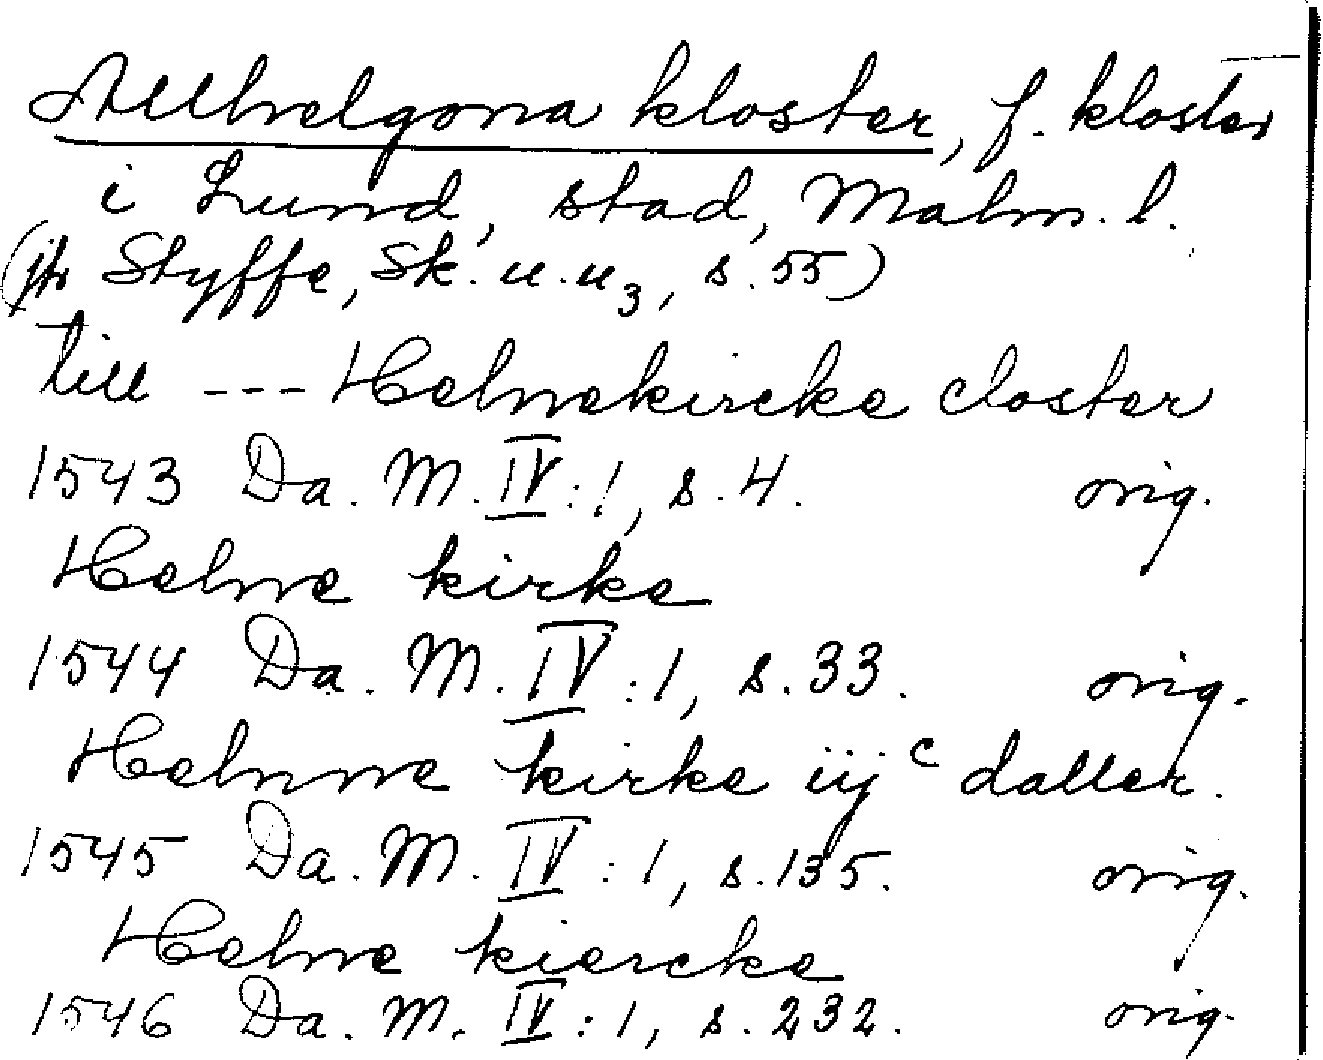 Allhelgona kloster, f. kloster
i Lund, stad, Malm. l.
(jfr Styffe, Sk. u. u3, s. 55)
till --- Helnekircke closter
1543 Da. M. IV:1, s. 4. orig.
Helne kirke
1544 Da. M. IV:1, s. 33. orig.
Helnne kirke iijc daller.
1545 Da. M. IV:1, s. 135. orig.
Helne kiercke
1546 Da. M. IV:1, s. 232. orig.